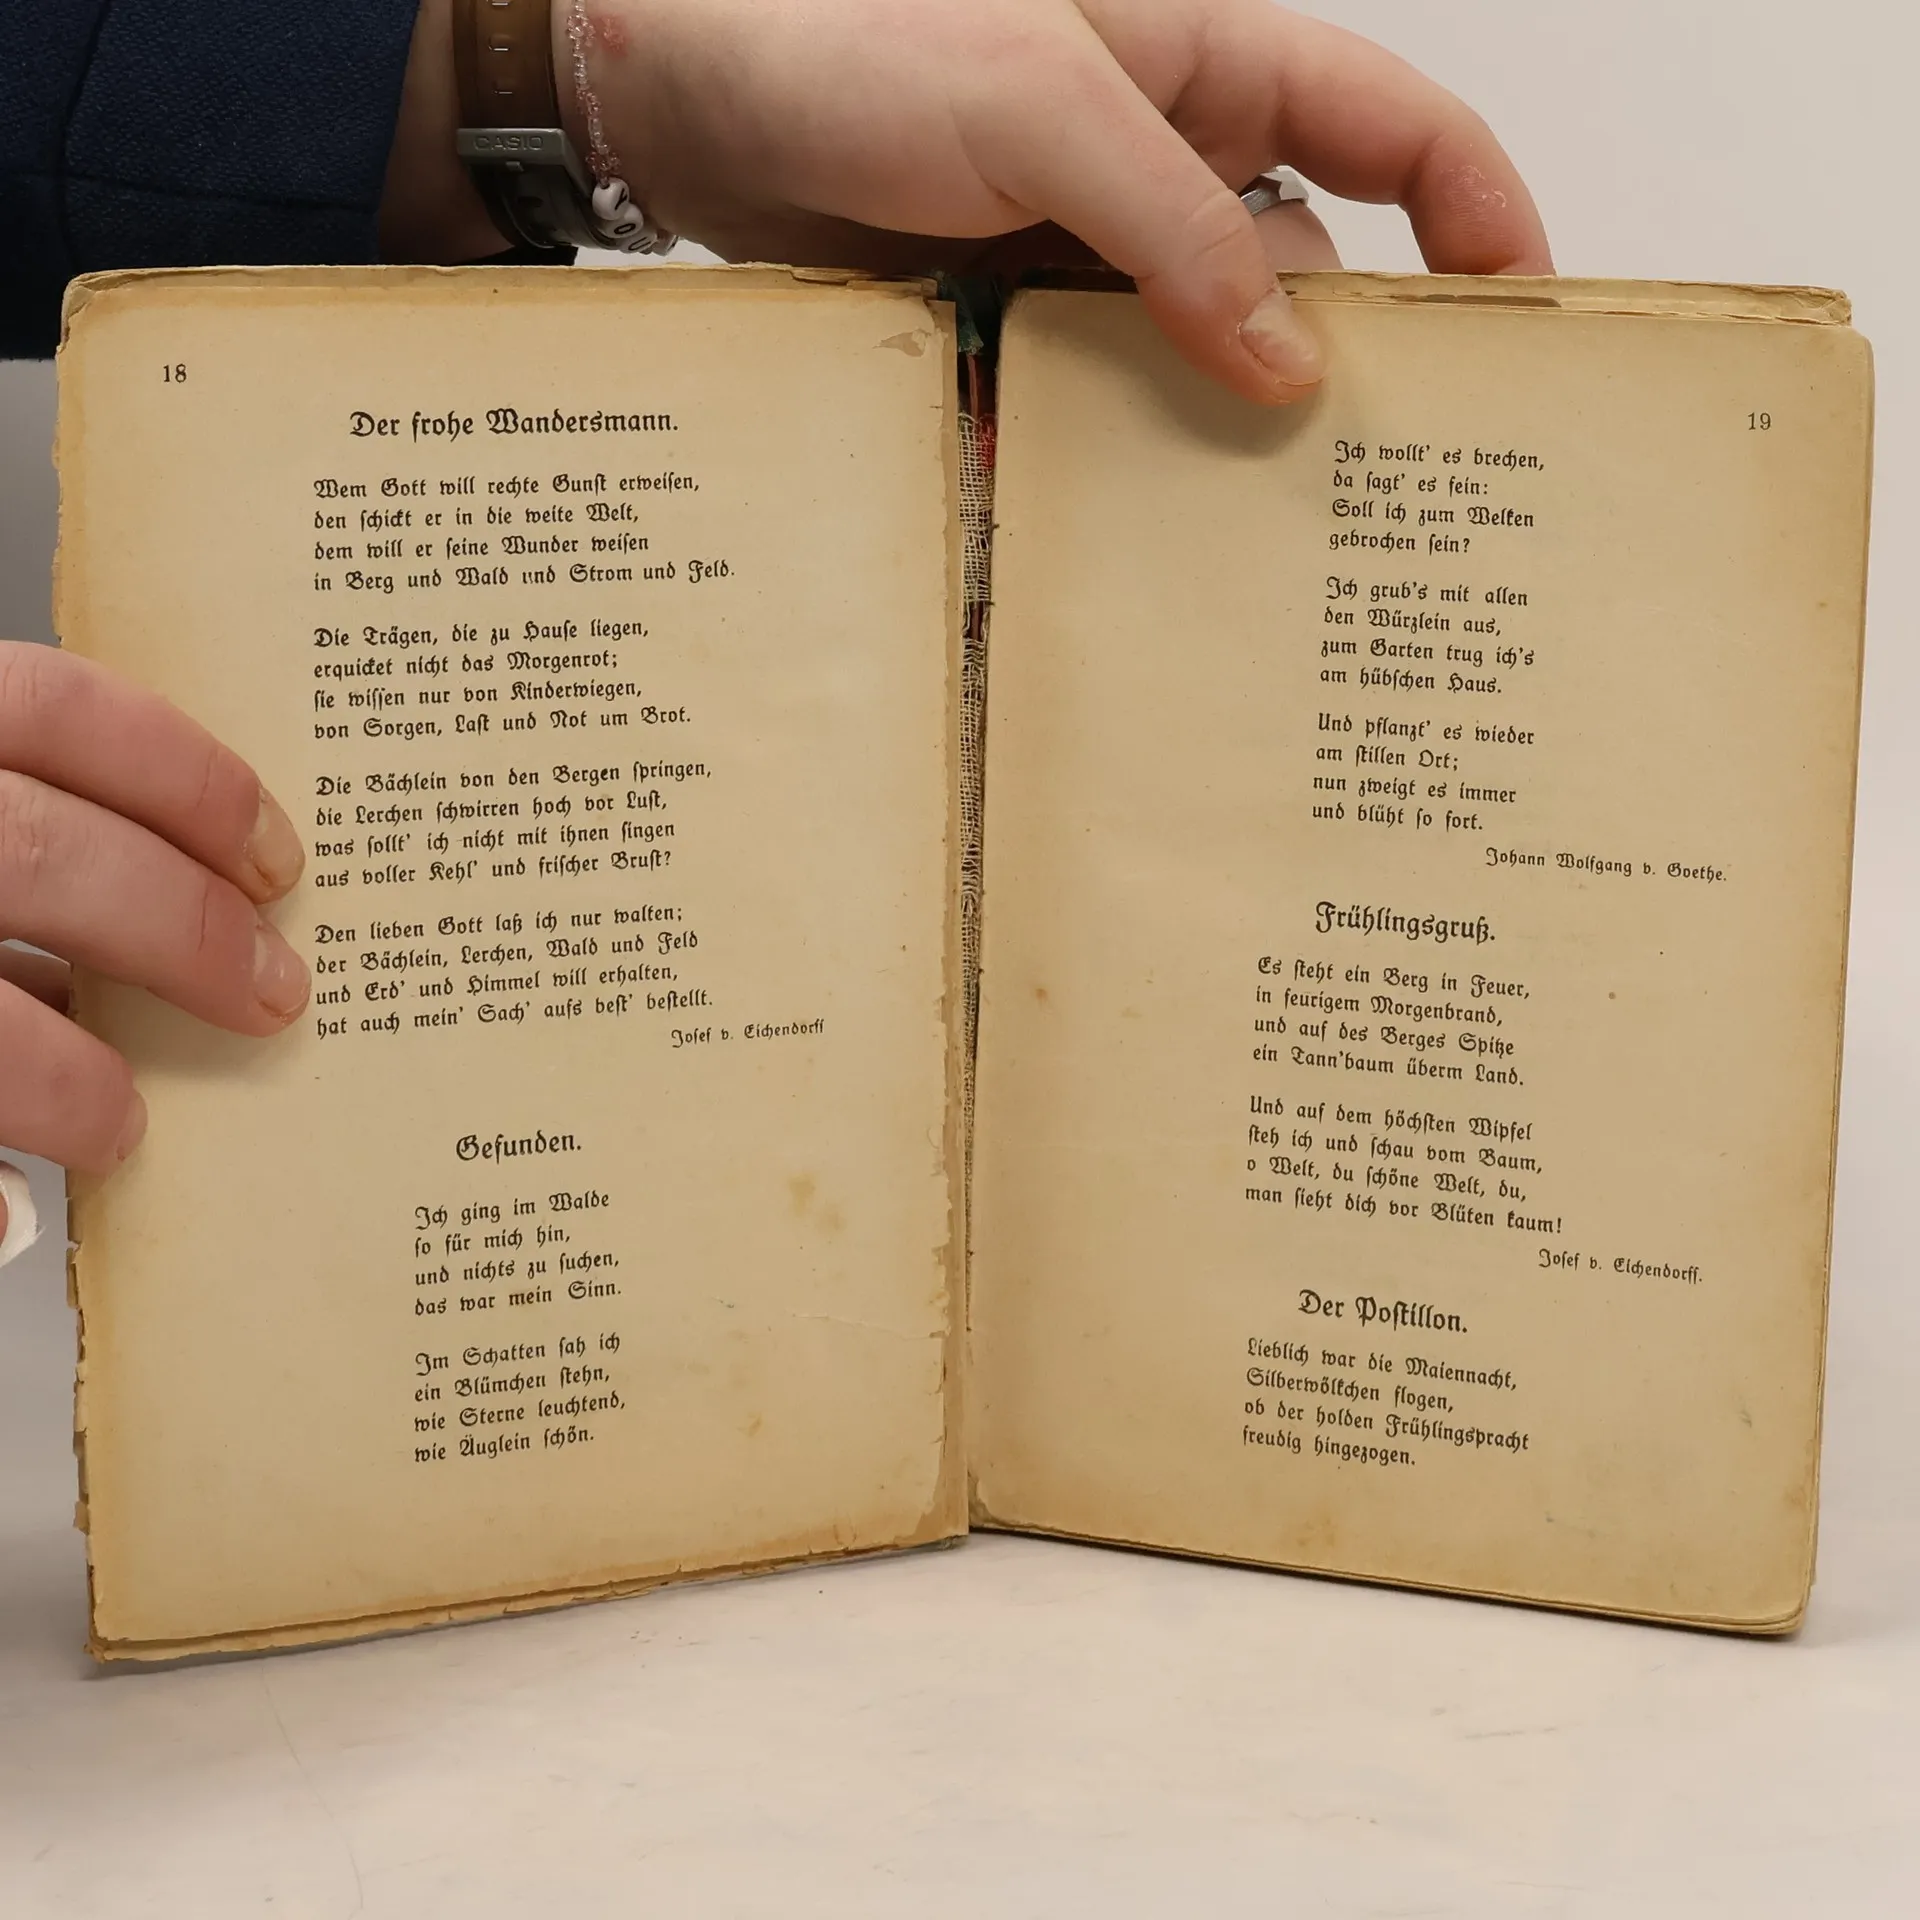 CASIO
YOU
18
Der frohe Wandersmann.
Wem Gott will rechte Gunſt erweiſen,
den ſchickt er in die weite Welt,
dem will er ſeine Wunder weiſen
in Berg und Wald und Strom und Feld.
Die Trägen, die zu Hauſe liegen,
erquicket nicht das Morgenrot;
ſie wiſſen nur von Kinderwiegen,
von Sorgen, Laſt und Not um Brot.
Die Bächlein von den Bergen ſpringen,
die Lerchen ſchwirren hoch vor Luſt,
was ſollt' ich nicht mit ihnen ſingen
aus voller Kehl' und friſcher Bruſt?
Den lieben Gott laß ich nur walten;
der Bächlein, Lerchen, Wald und Feld
und Erd' und Himmel will erhalten,
hat auch mein' Sach' aufs beſt' beſtellt.
Joſef v. Eichendorff
Gefunden.
Ich ging im Walde
ſo für mich hin,
und nichts zu ſuchen,
das war mein Sinn.
Im Schatten ſah ich
ein Blümchen ſtehn,
wie Sterne leuchtend,
wie Äuglein ſchön.
19
Ich wollt' es brechen,
da ſagt' es fein:
Soll ich zum Welken
gebrochen ſein?
Ich grub's mit allen
den Würzlein aus,
zum Garten trug ich's
am hübſchen Haus.
Und pflanzt' es wieder
am ſtillen Ort;
nun zweigt es immer
und blüht ſo fort.
Johann Wolfgang v. Goethe.
Frühlingsgruß.
Es ſteht ein Berg in Feuer,
in feurigem Morgenbrand,
und auf des Berges Spitze
ein Tann'baum überm Land.
Und auf dem höchſten Wipfel
ſteh ich und ſchau vom Baum,
o Welt, du ſchöne Welt, du,
man ſieht dich vor Blüten kaum!
Joſef v. Eichendorff.
Der Poſtillon.
Lieblich war die Maiennacht,
Silberwölkchen flogen,
ob der holden Frühlingspracht
freudig hingezogen.